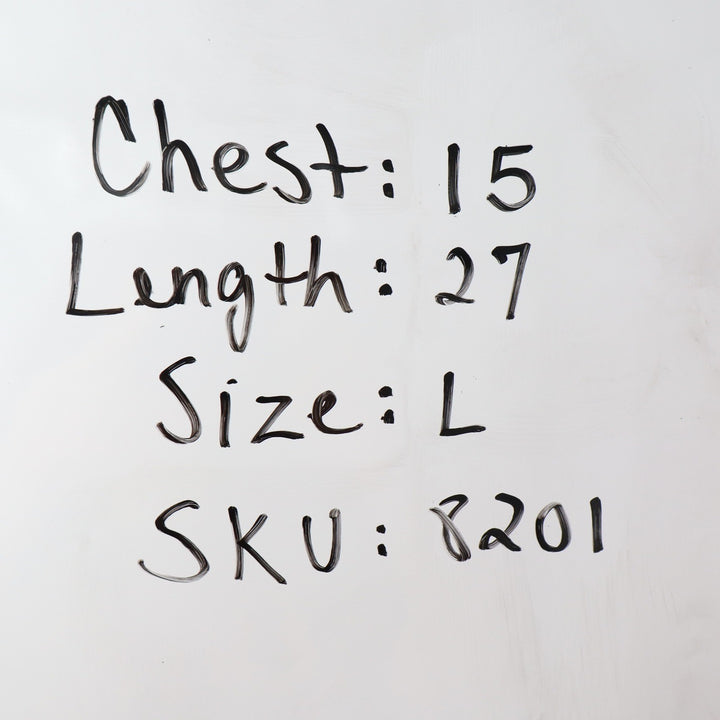 Chest: 15
Length: 27
Size: L
SKU: 8201